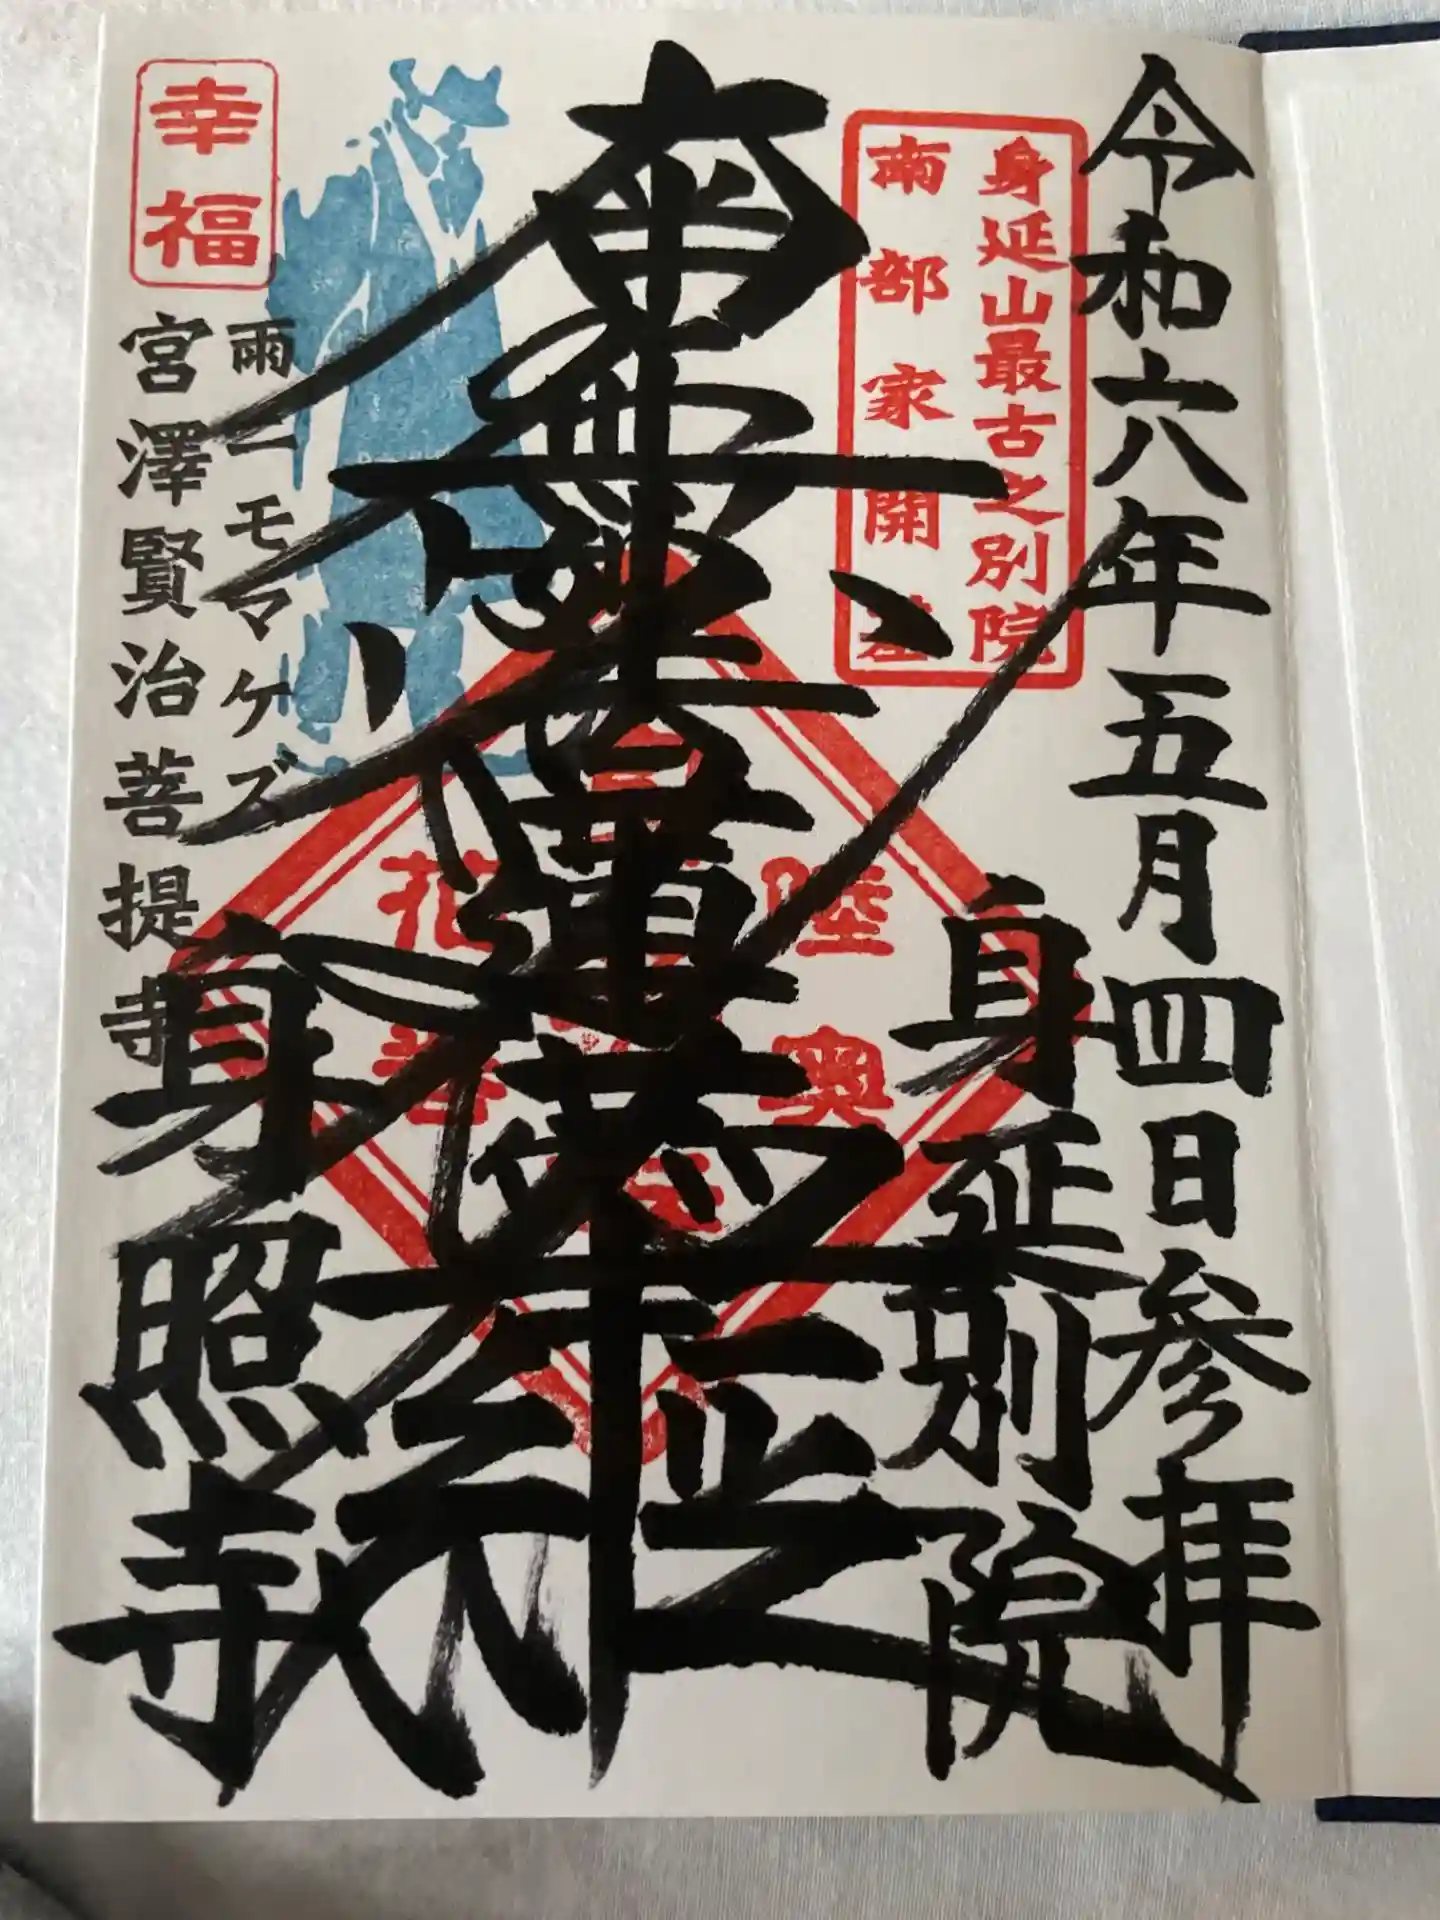 令和六年五月四日参拝
身延山最古之別院
南部家開基
身延別院
南無妙法蓮華経
陸奥
花巻
雨ニモマケズ
幸福
宮澤賢治菩提寺
身照寺